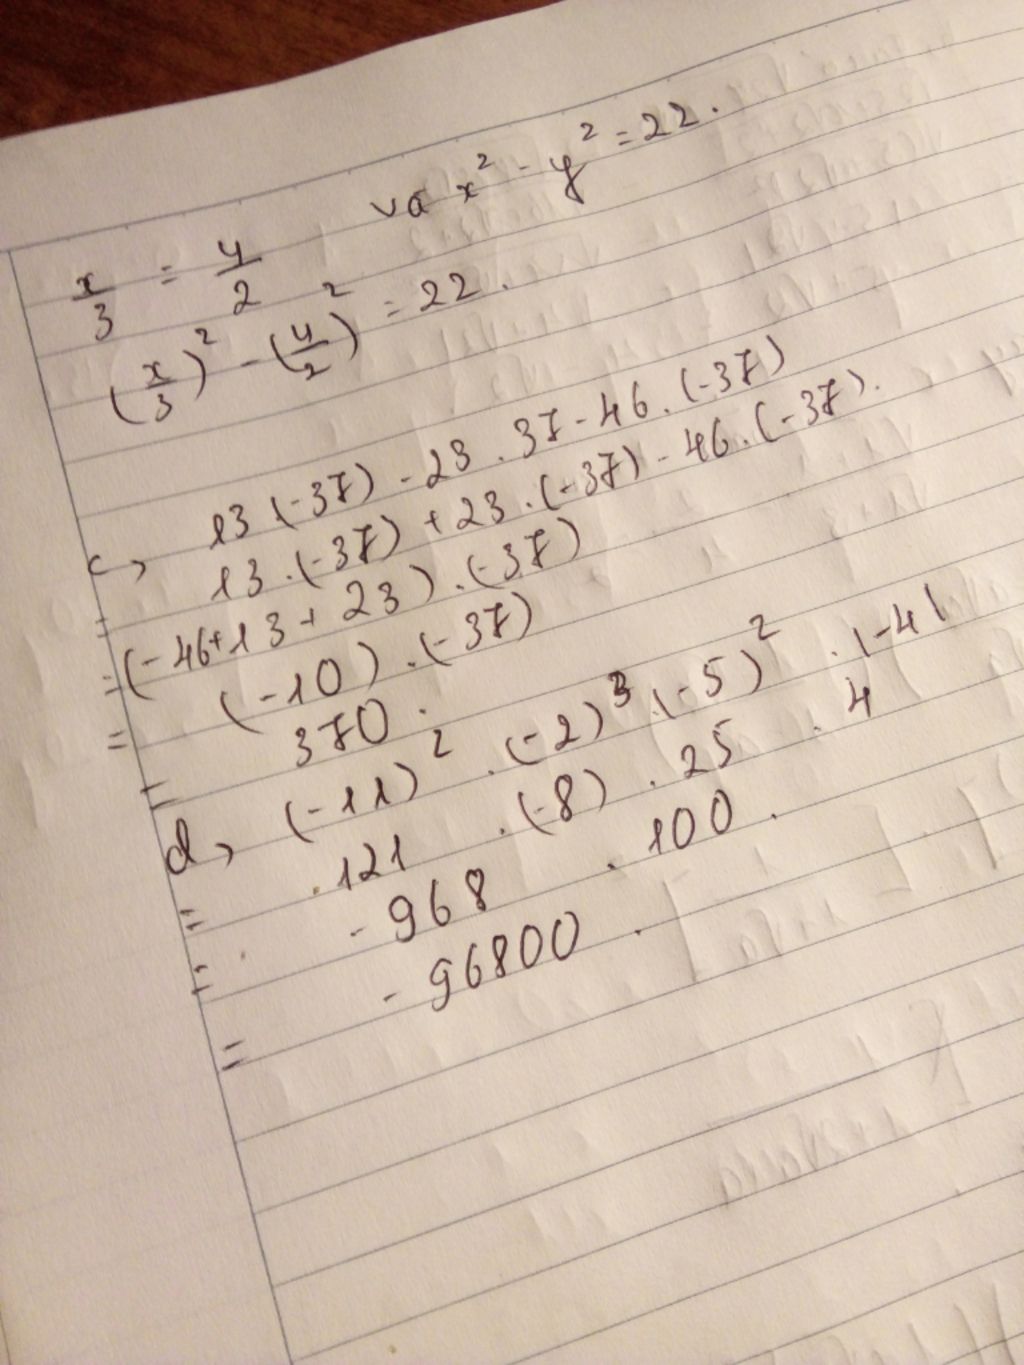 x/3 = y/2 và x² - y² = 22.
(x/3)² - (y/2)² = 22.
c, 13(-37) - 23 . 37 - 46 . (-37)
= 13 . (-37) + 23 . (-37) - 46 . (-37).
= (-46+13+23) . (-37)
= (-10) . (-37)
= 370.
d, (-11)² . (-2)³ . (-5)² . |-4|
= 121 . (-8) . 25 . 4
= -968 . 100.
= -96800.